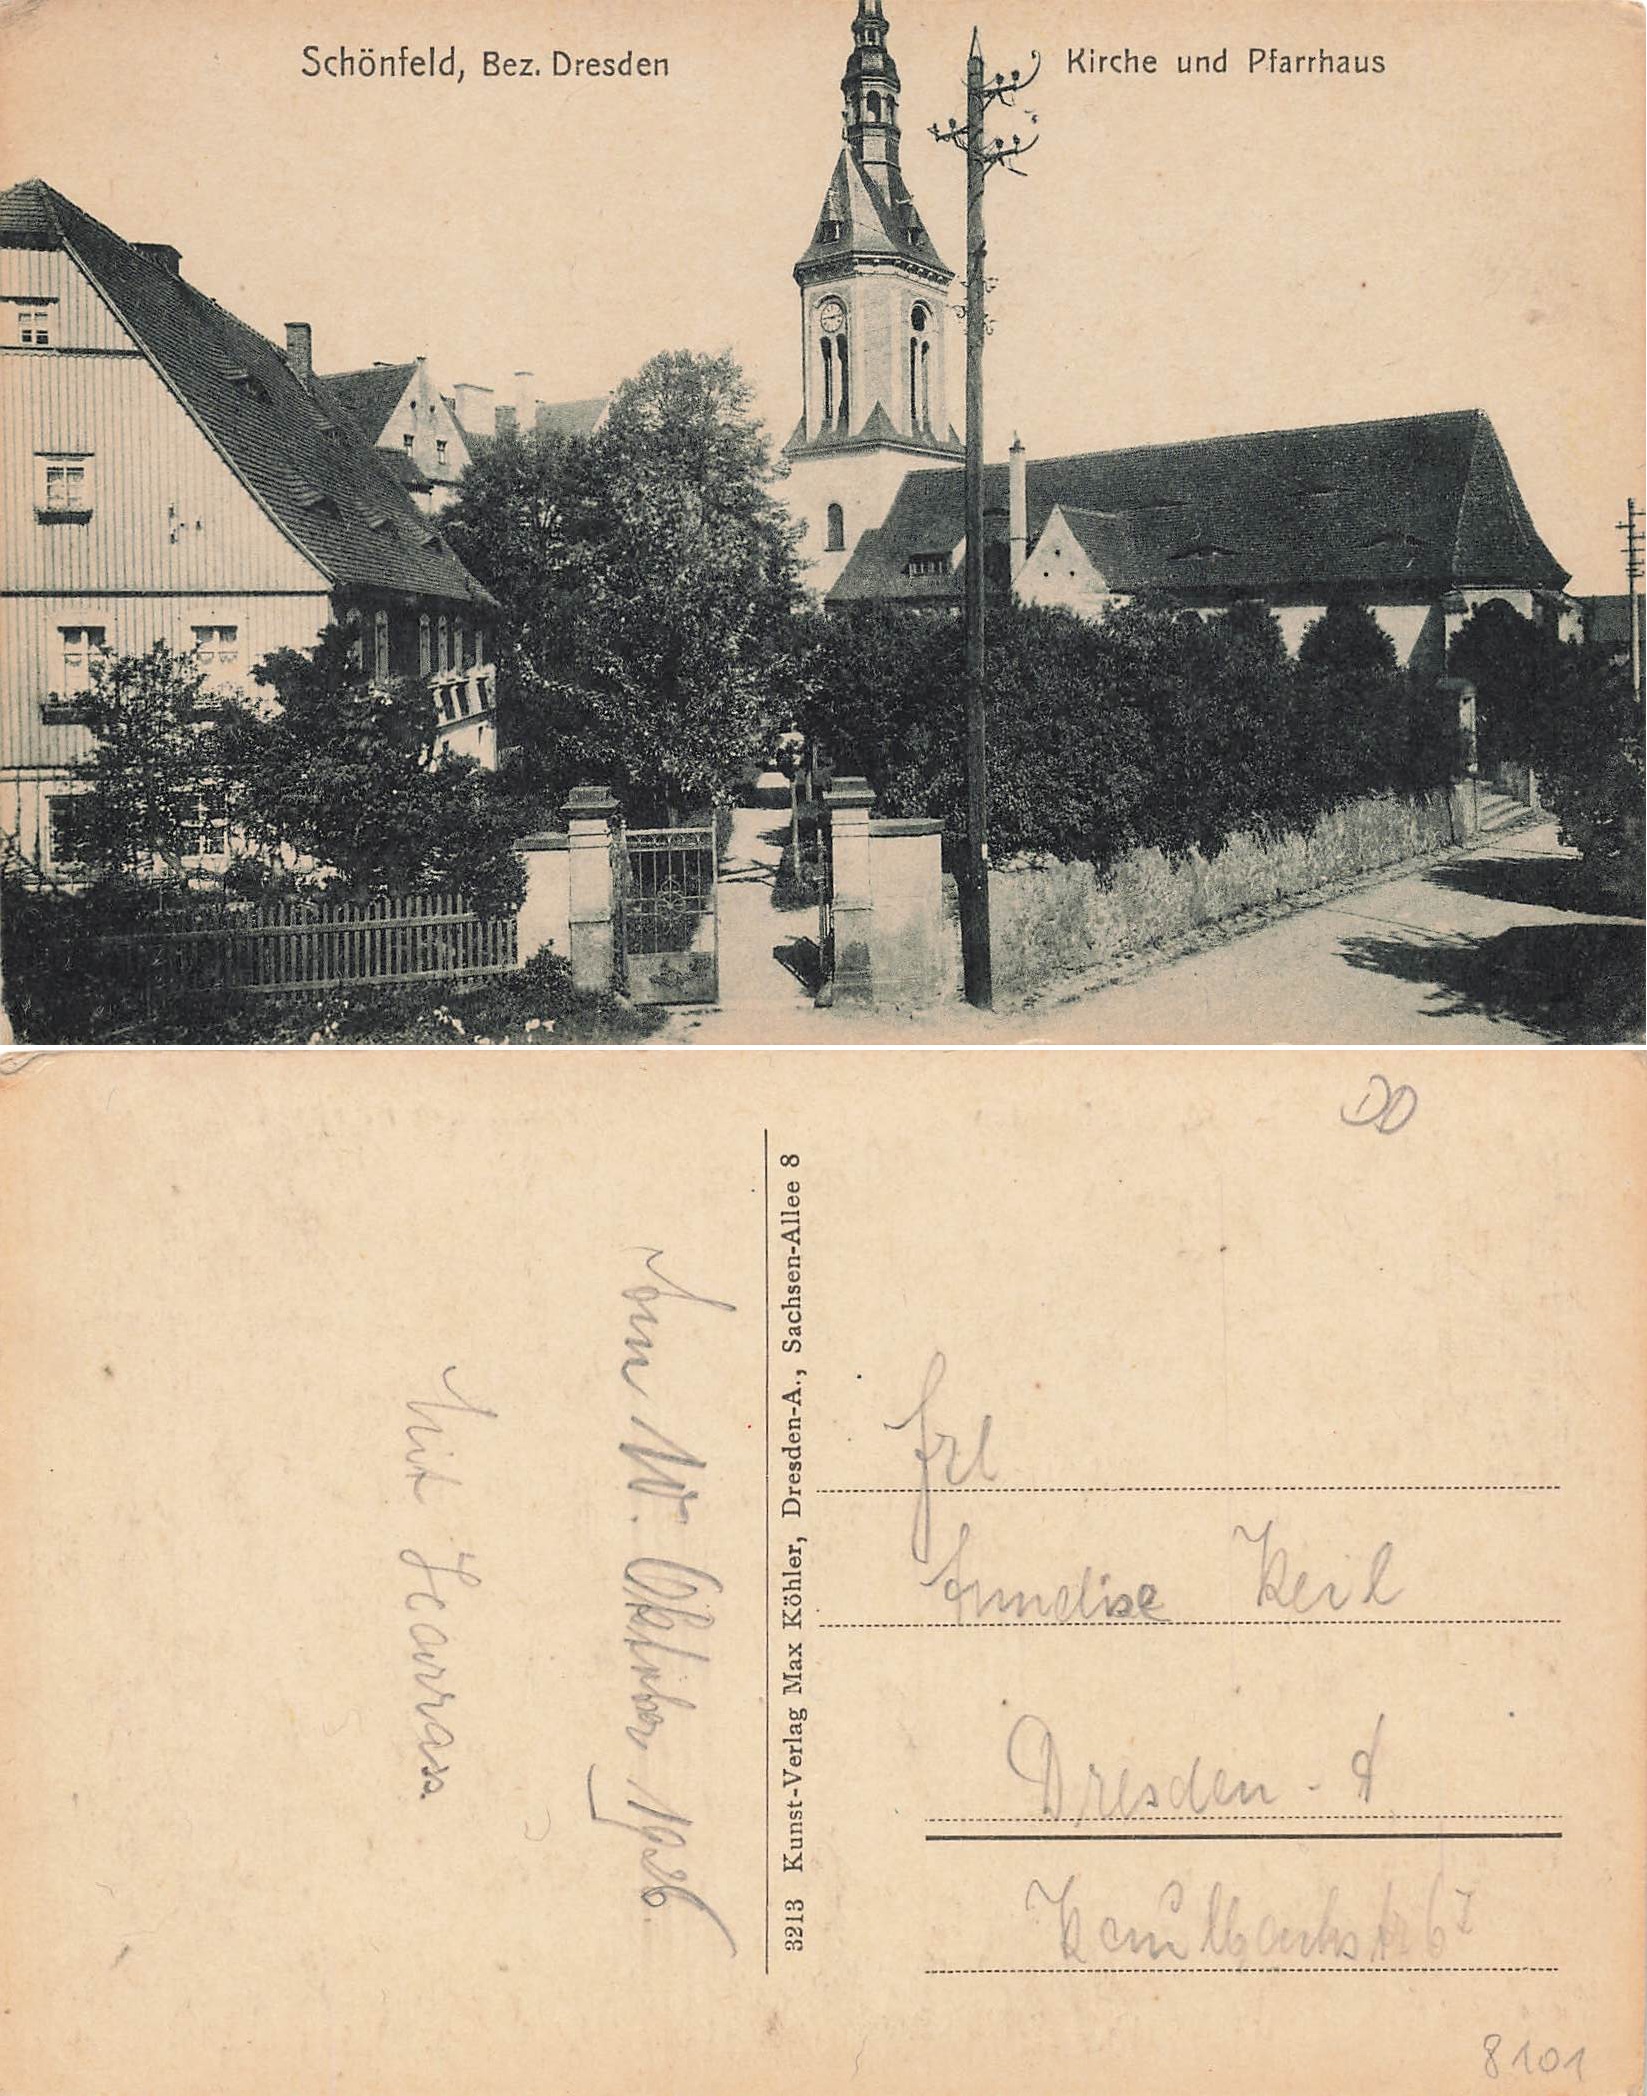 Schönfeld, Bez. Dresden
Kirche und Pfarrhaus
DD
3213 Kunst-Verlag Max Köhler, Dresden-A., Sachsen-Allee 8
Vom 10. Oktober 1926.
Mit Harrass
Frl
Annelise Keil
Dresden - A
Kaulbachstr 6 I
8101